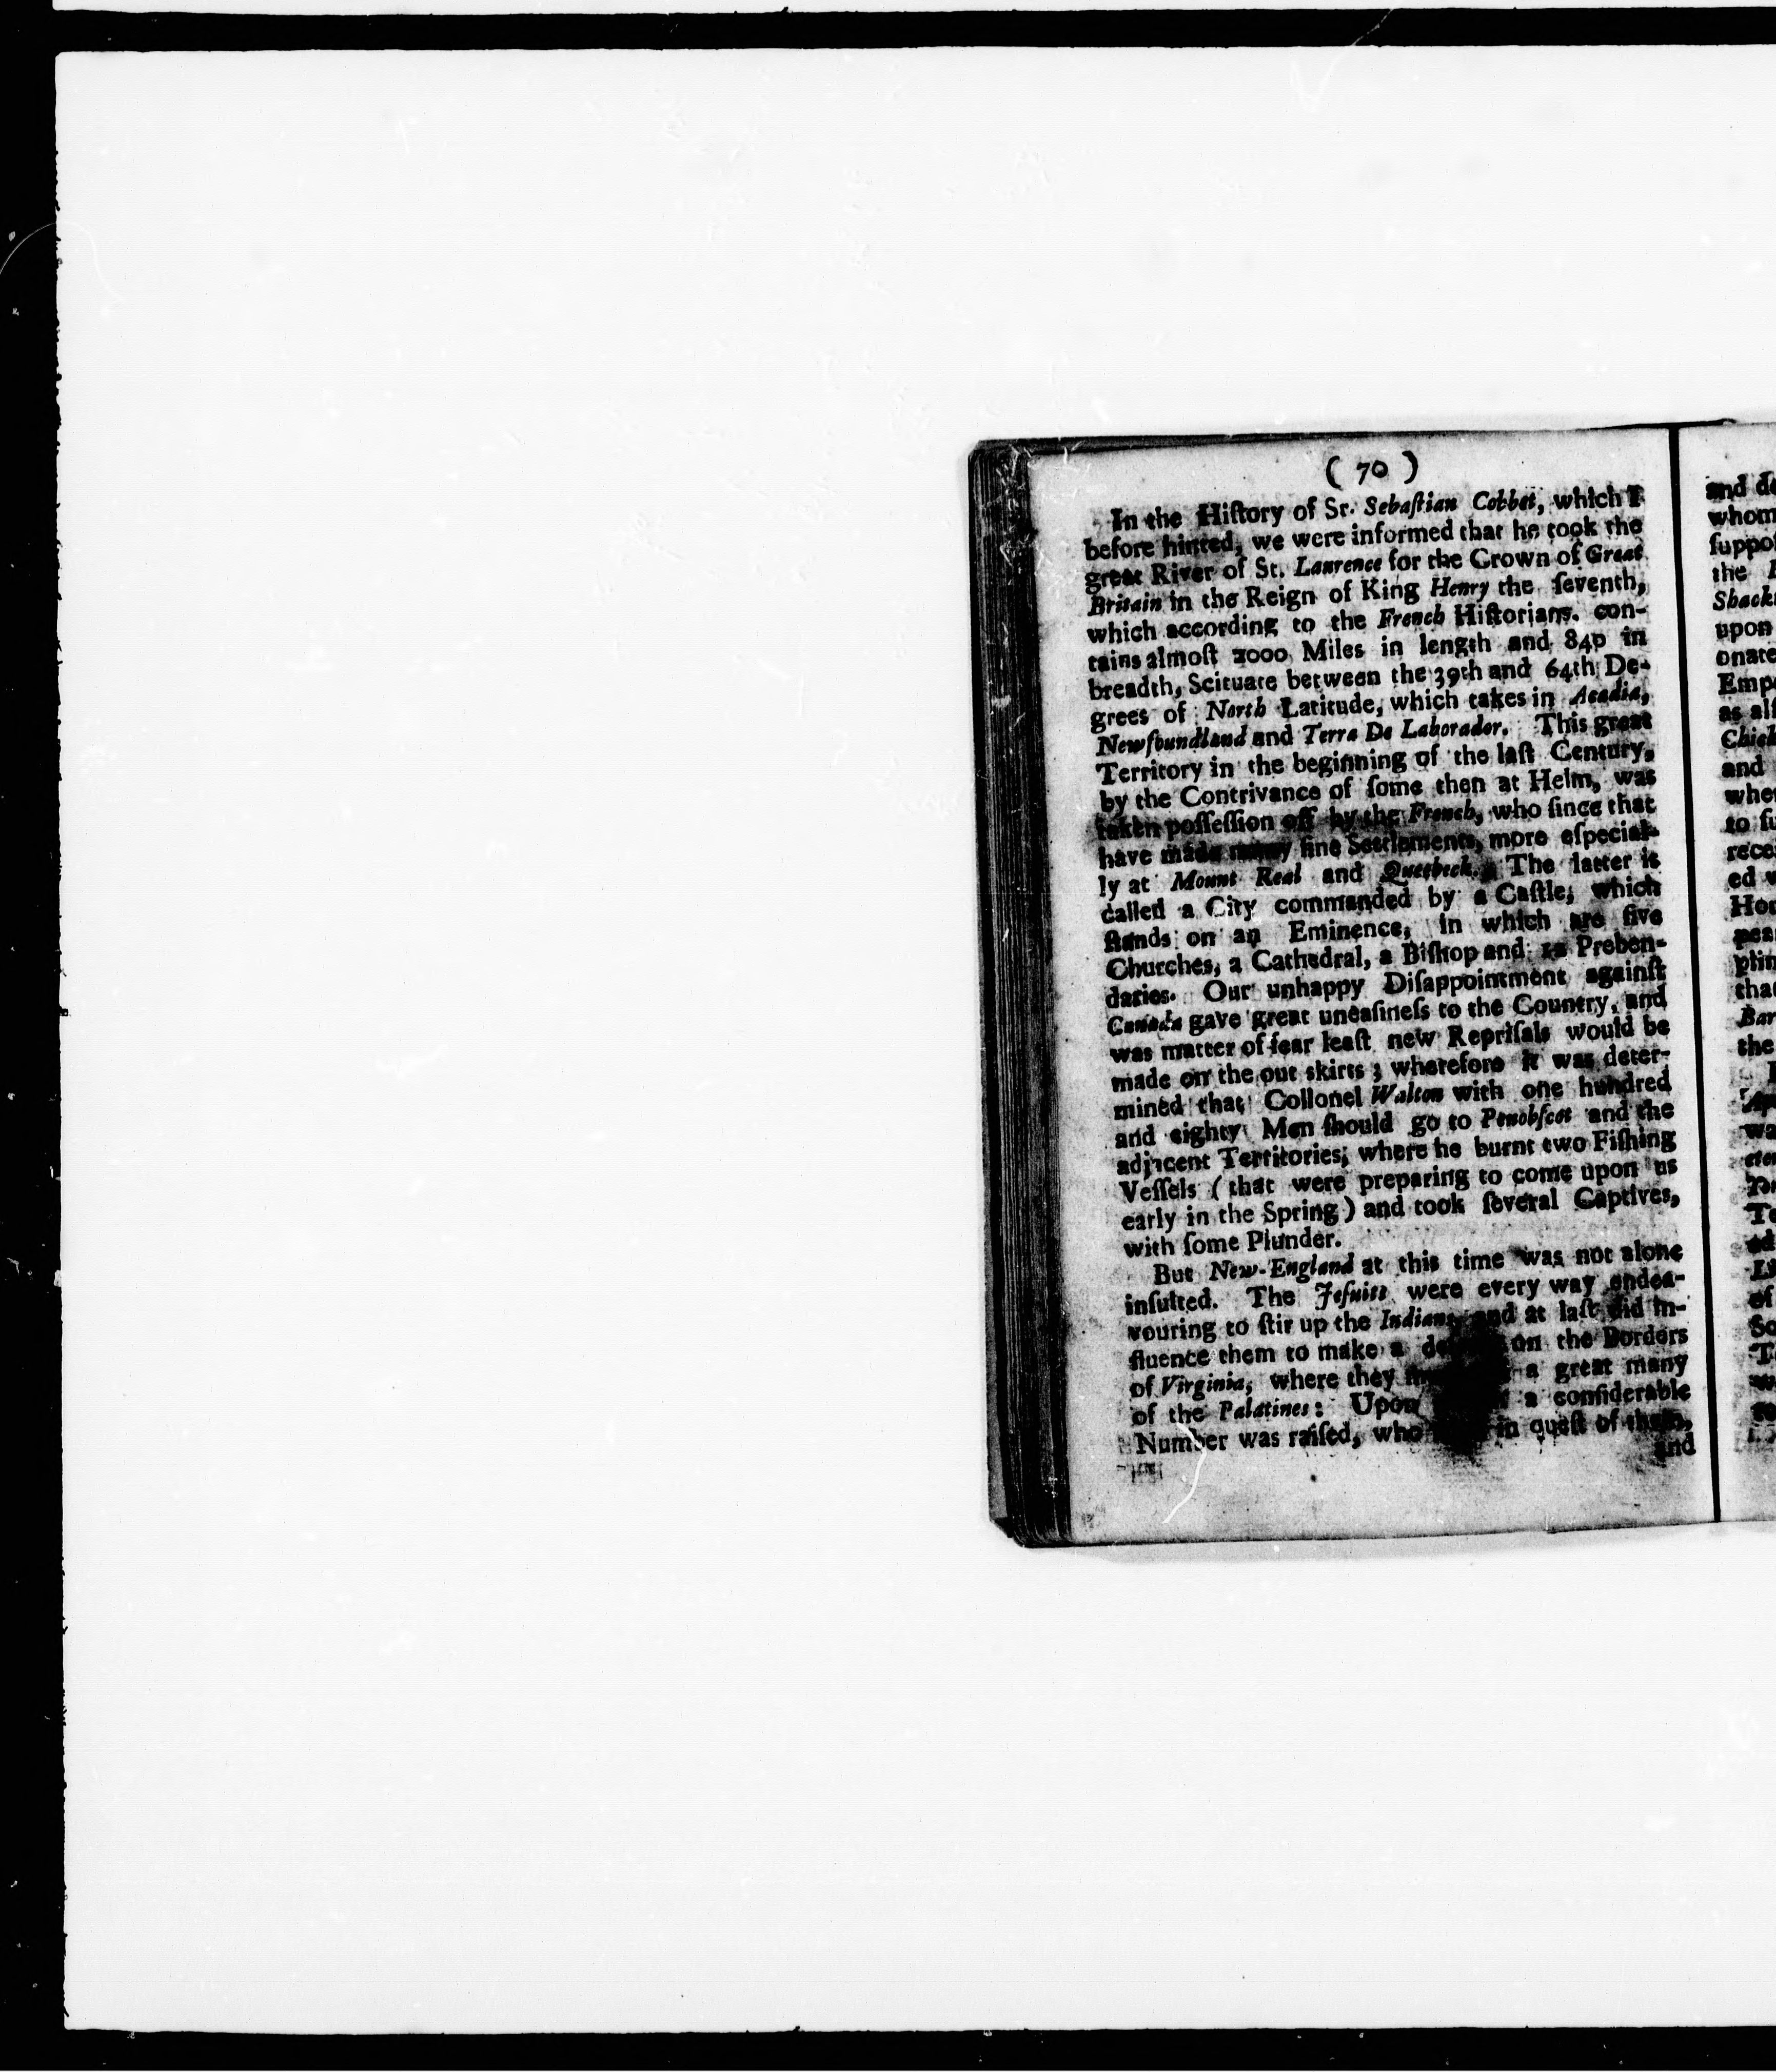 ( 70 )
In the Hiſtory of Sr. Sebaſtian Cobbet, which I
before hinted, we were informed that he took the
great River of St. Laurence for the Crown of Great
Britain in the Reign of King Henry the ſeventh,
which according to the French Hiſtorians. con-
tains almoſt 2000 Miles in length and 840 in
breadth, Scituate between the 39th and 64th De-
grees of North Latitude, which takes in Acadia,
Newfoundland and Terra De Laborador. This great
Territory in the beginning of the laſt Century,
by the Contrivance of ſome then at Helm, was
taken poſſeſſion off by the French, who ſince that
have made many fine Settlements, more eſpecial-
ly at Mount Real and Queebeck. The latter is
called a City commanded by a Caſtle, which
ſtands on an Eminence, in which are five
Churches, a Cathedral, a Biſhop and 12 Preben-
daries. Our unhappy Diſappointment againſt
Canada gave great uneaſineſs to the Country, and
was matter of fear leaſt new Repriſals would be
made on the out skirts ; wherefore it was deter-
mined that Collonel Walton with one hundred
and eighty Men ſhould go to Penobſcot and the
adjacent Territories; where he burnt two Fiſhing
Veſſels ( that were preparing to come upon us
early in the Spring ) and took ſeveral Captives,
with ſome Plunder.
But New-England at this time was not alone
inſulted. The Jeſuits were every way endea-
vouring to ſtir up the Indians, and at laſt did in-
fluence them to make a on the Borders
of Virginia, where they a great many
of the Palatines : Upon a conſiderable
Number was raiſed, who in queſt of them,
and
and de
whom
ſuppoſ
the
Shack
upon
onate
Empe
as alſ
Chick
and
whe
to ſu
rece
ed
Ho
pea
plin
tha
Bar
the
wa
To
ed
of
So